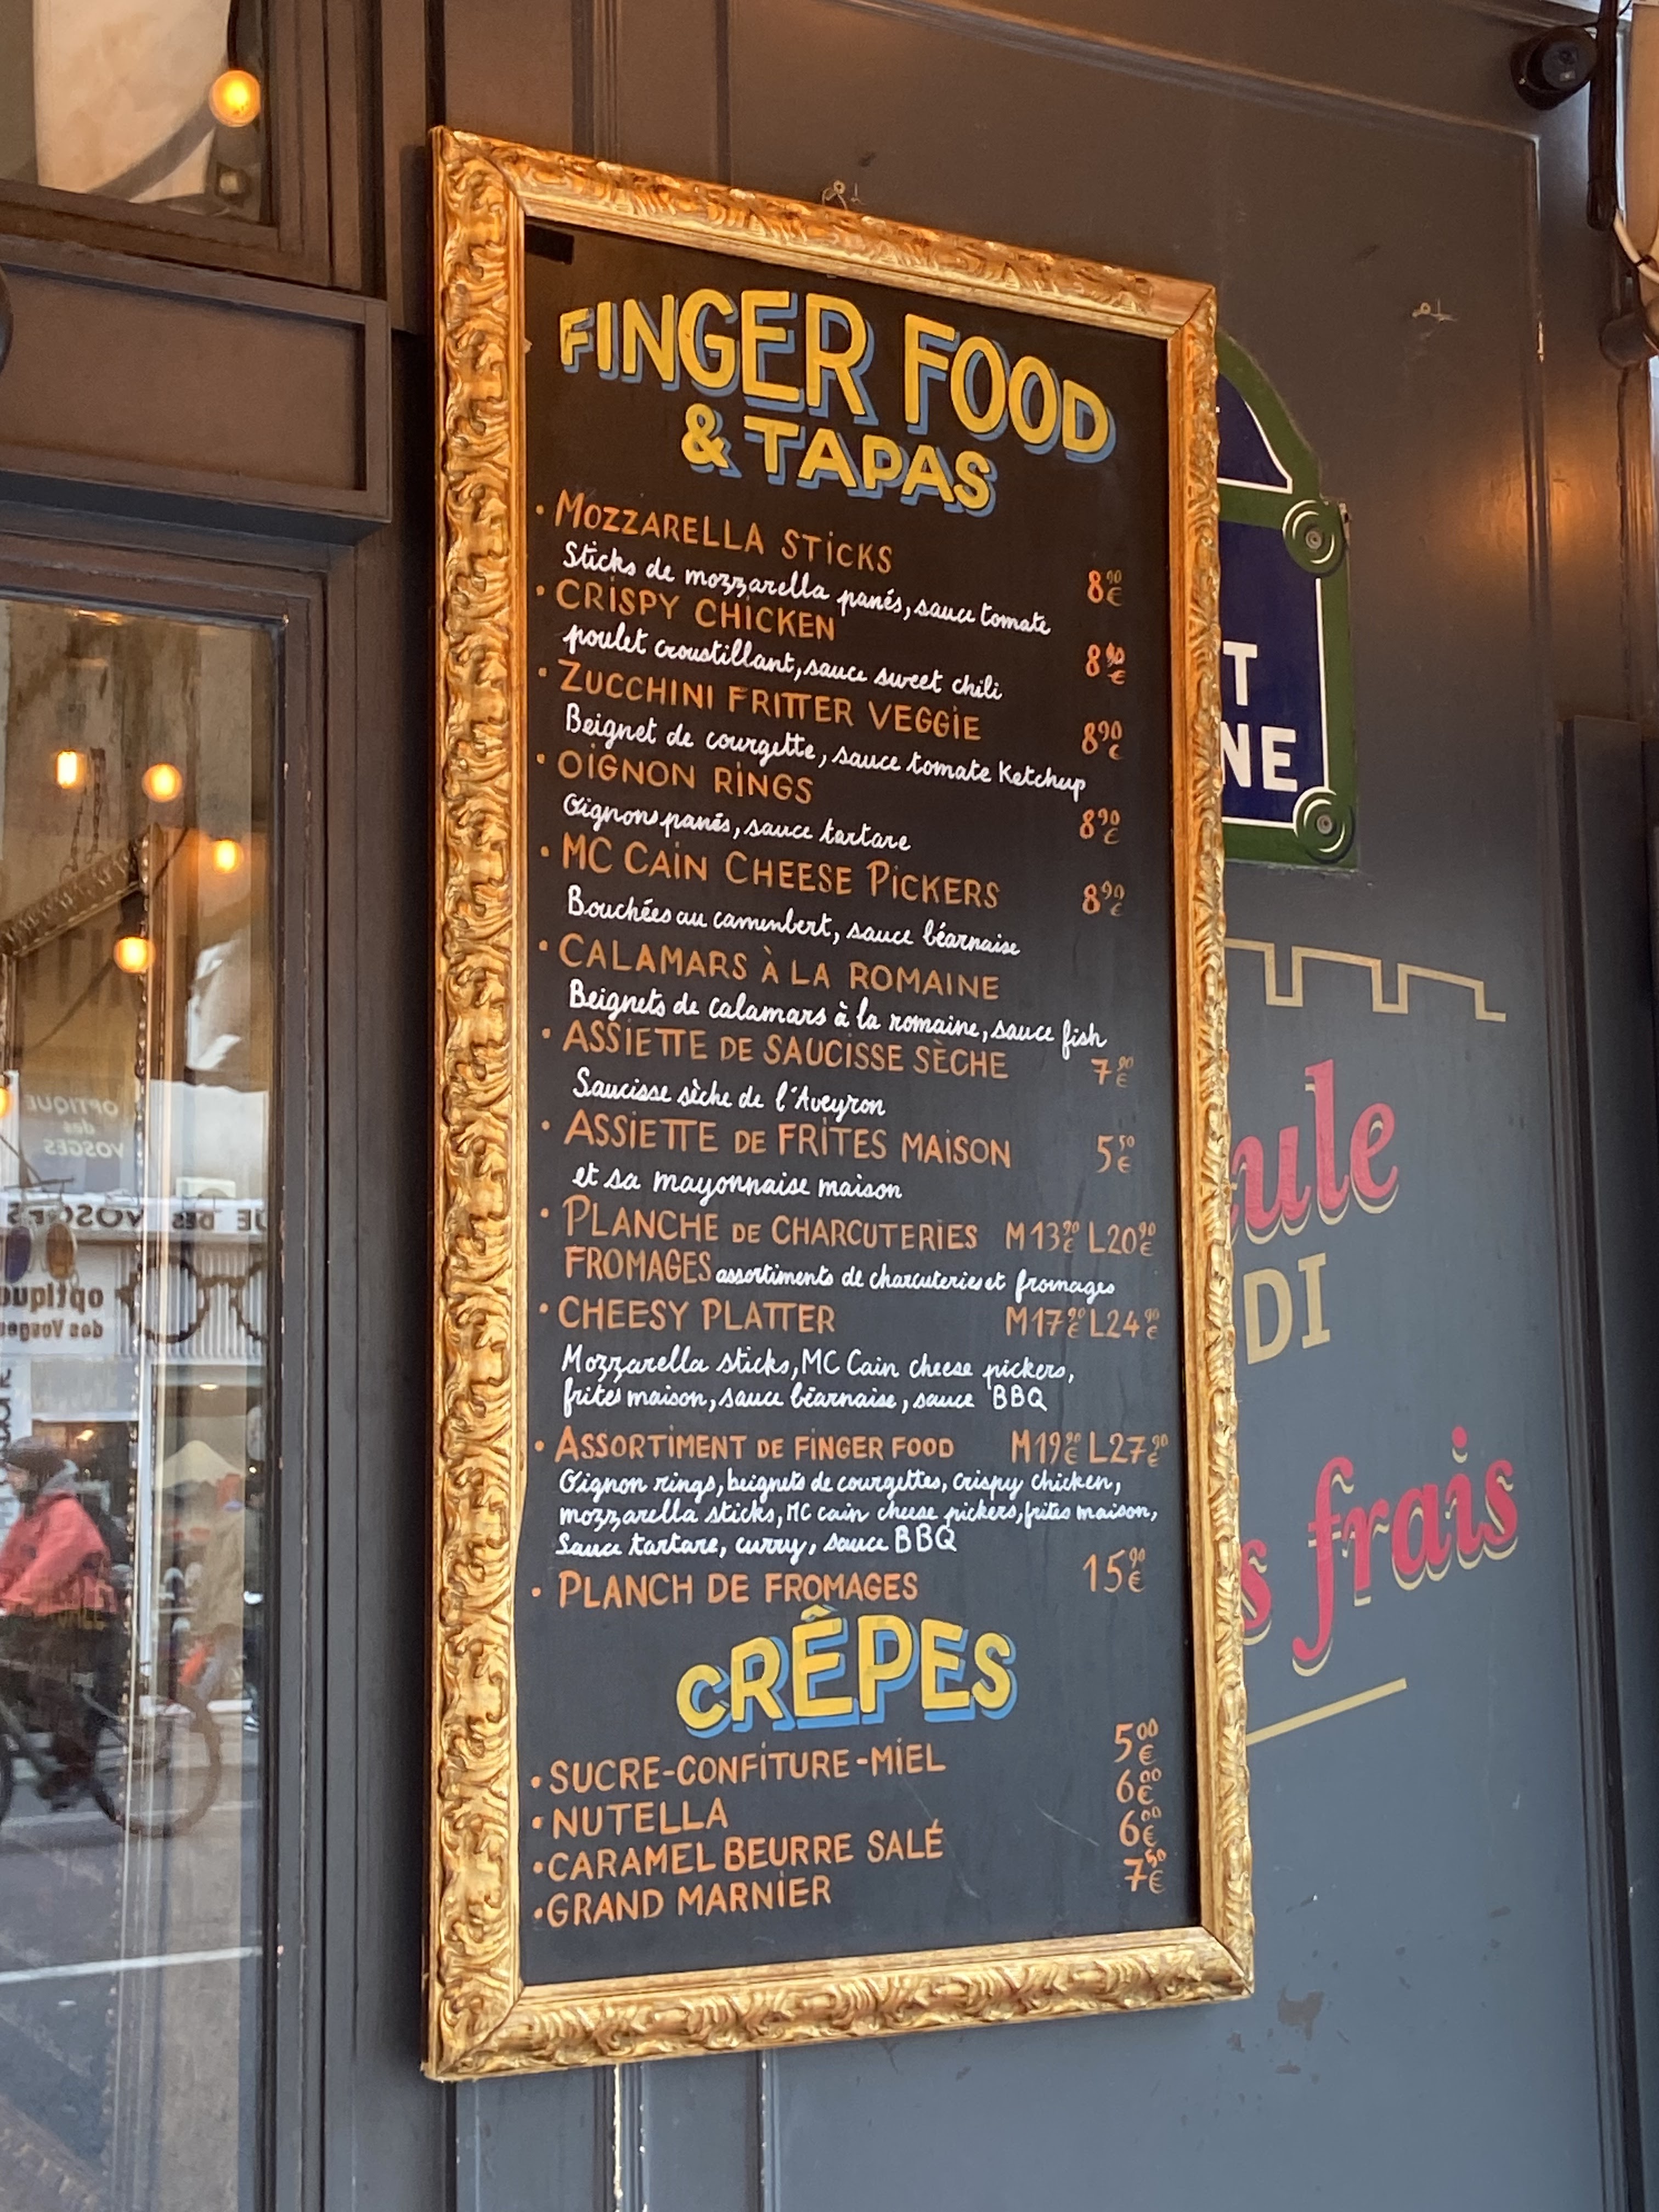 FINGER FOOD
& TAPAS
• MOZZARELLA STICKS
Sticks de mozzarella panés, sauce tomate 8€90
• CRISPY CHICKEN
poulet croustillant, sauce sweet chili 8€90
• ZUCCHINI FRITTER VEGGIE 8€90
Beignet de courgette, sauce tomate Ketchup
• OIGNON RINGS
Oignons panés, sauce tartare 8€90
• MC CAIN CHEESE PICKERS 8€90
Bouchées au camembert, sauce béarnaise
• CALAMARS À LA ROMAINE
Beignets de calamars à la romaine, sauce fish
• ASSIETTE DE SAUCISSE SÈCHE 7€90
Saucisse sèche de l'Aveyron
• ASSIETTE DE FRITES MAISON 5€50
et sa mayonnaise maison
• PLANCHE DE CHARCUTERIES M13€90 L20€90
FROMAGES assortiments de charcuteries et fromages
• CHEESY PLATTER M17€90 L24€90
Mozzarella sticks, MC Cain cheese pickers,
frites maison, sauce béarnaise, sauce BBQ
• ASSORTIMENT DE FINGER FOOD M19€90 L27€90
Oignon rings, beignets de courgettes, crispy chicken,
mozzarella sticks, MC cain cheese pickers, frites maison,
Sauce tartare, curry, sauce BBQ
• PLANCH DE FROMAGES 15€90
CRÊPES
• SUCRE-CONFITURE-MIEL 5€00
• NUTELLA 6€00
• CARAMEL BEURRE SALÉ 6€00
• GRAND MARNIER 7€50
T
NE
ule
DI
s frais
OPTIQUE
des
VOSGES
UE DES VOSGES
optique
des Vosges